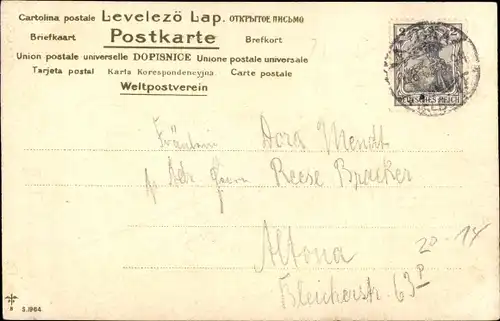 Cartolina postale Levelező Lap. ОТКРЫТОЕ ПИСЬМО
Briefkaart Postkarte Brefkort
Union postale universelle DOPISNICE Unione postale universale
Tarjeta postal Karta Korespondencyjna Carte postale
Weltpostverein
2 2
DEUTSCHES REICH
Fräulein Dora Mendt
Adr Herrn Reese Bracker
Altona
20-14
Bleicherstr. 63 P
S.1964